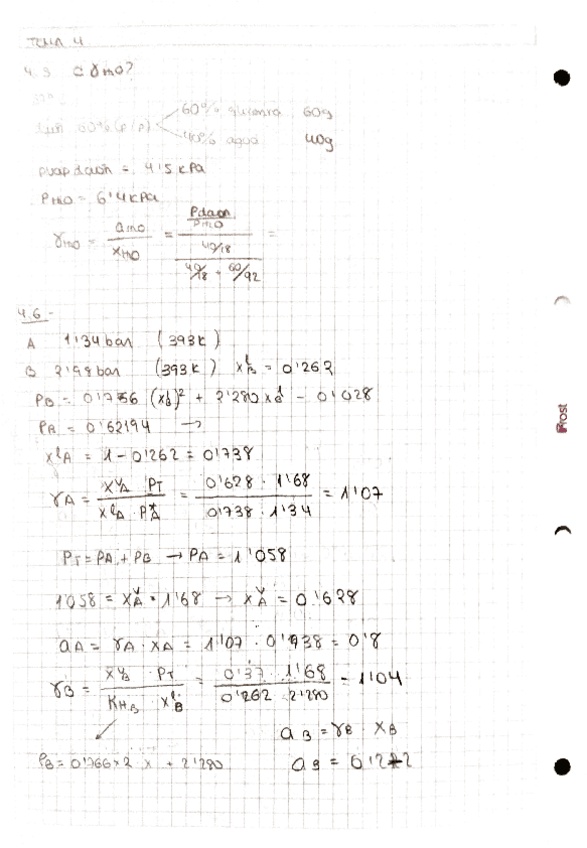 TEMA 4
4.3 ¿γH2O?
60% (p/p) 60% glicerina 60g
40% agua 40g
pvap daon = 4'5 kPa
PH2O = 6'4 kPa
γH2O = aH2O / xH2O = (Pdaon / PH2O) / ((40/18) / (40/18 + 60/92)) =
4.6.-
A 1'34 bar (393K)
B 2'98 bar (393K) xˡB = 0'262
PB = (xˡB)² + 2'280 xˡB - 0'028
PB = 0'62194 →
xˡA = 1 - 0'262 = 0'738
γA = xᵛA PT / xˡA P*A = 0'628 · 1'68 / 0'738 · 1'34 = 1'07
PT = PA + PB → PA = 1'058
1'058 = xᵛA · 1'68 → xᵛA = 0'628
aA = γA · xA = 1'07 · 0'738 = 0'8
γB = xᵛB · PT / KH,B · xˡB = 0'37 · 1'68 / 0'262 · 2'280 = 1'04
aB = γB xB
PB = 0'766 x 2 x + 2'280
aB =
iFrost